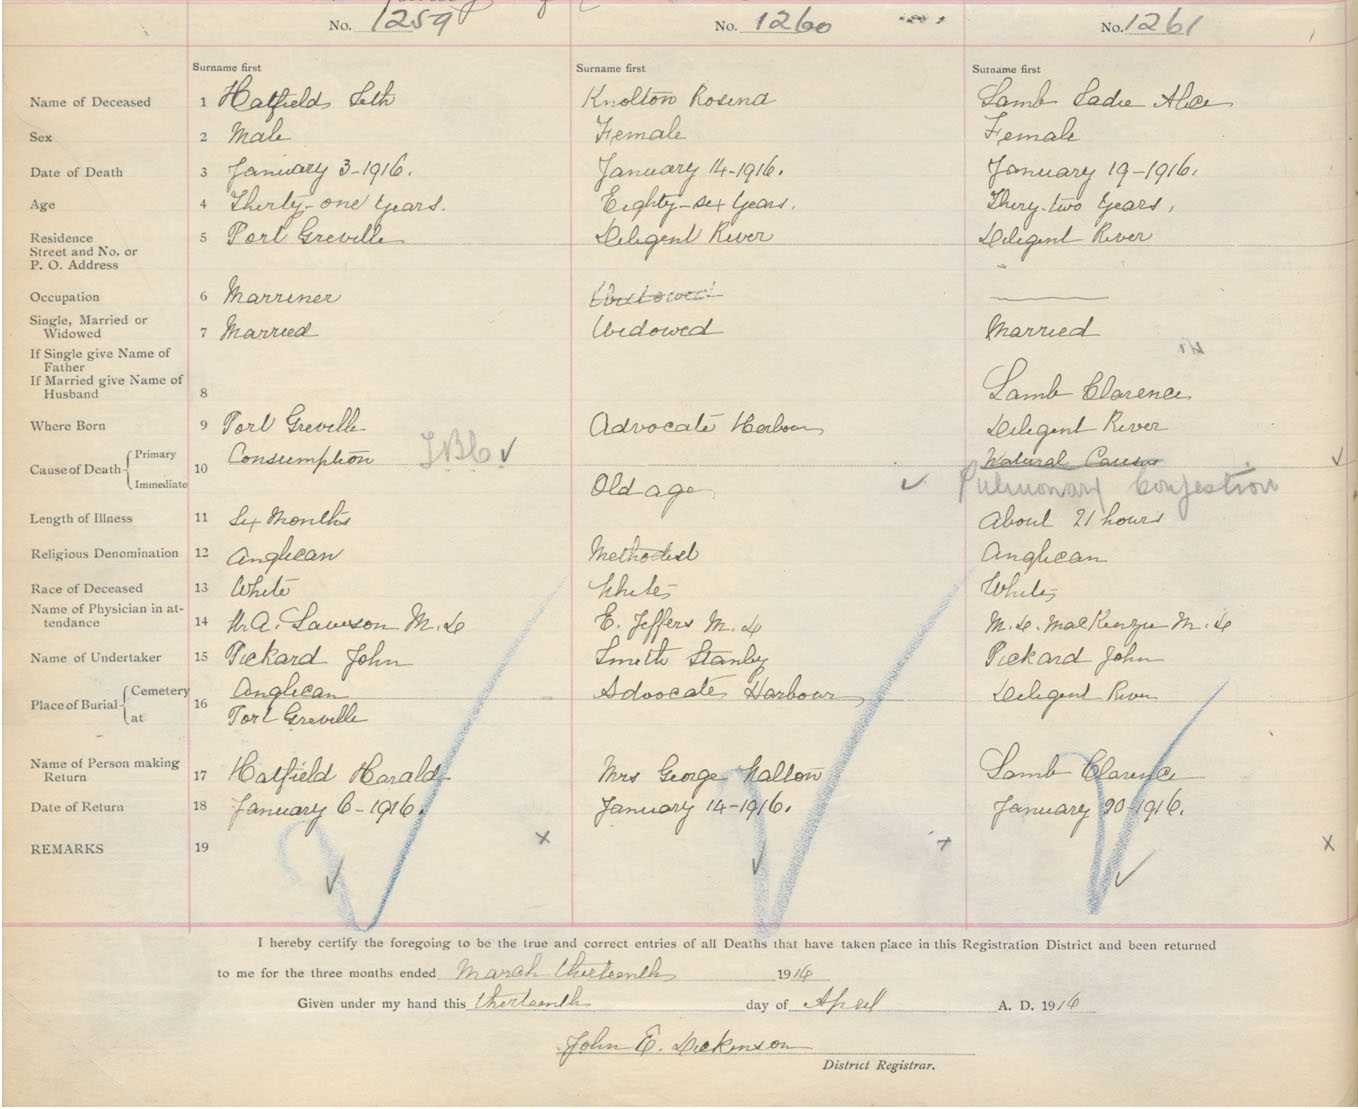 No. 1259 No. 1260 No. 1261
Surname first Surname first Surname first
Name of Deceased 1 Hatfields Seth Knolton Rosena Lamb Sadie Alice
Sex 2 Male Female Female
Date of Death 3 January 3-1916. January 14-1916. January 19-1916.
Age 4 Thirty-one Years. Eighty-six Years. Thiry-two Years,
Residence 5 Port Greville Deligent River Deligent River
Street and No. or
P. O. Address
Occupation 6 Marriner
Single, Married or
Widowed 7 Married Widowed Married
If Single give Name of
Father
If Married give Name of
Husband 8 Lamb Clarence
Where Born 9 Port Greville Advocate Harbour Deligent River
Cause of Death 10 Primary Consumption T.B.C. Natural Causes
Immediate Old age Pulmonary Conjestion
Length of Illness 11 Six Months About 21 hours
Religious Denomination 12 Anglican Methodist Anglican
Race of Deceased 13 White White White
Name of Physician in at-
tendance 14 Lawson M.D E. Jeffers M.D M.D. MacKenzie M.D
Name of Undertaker 15 Pickard John Smith Stanly Pickard John
Place of Burial 16 Cemetery Anglican Advocate Harbour Deligent River
at Port Greville
Name of Person making
Return 17 Hatfield Harald Mrs George Lamb Clarence
Date of Return 18 January 6-1916. January 14-1916. January 20-1916.
REMARKS 19 x + x
I hereby certify the foregoing to be the true and correct entries of all Deaths that have taken place in this Registration District and been returned
to me for the three months ended March thirteenth 1916
Given under my hand this thirteenth day of April A. D. 1916
John E. Dickinson
District Registrar.